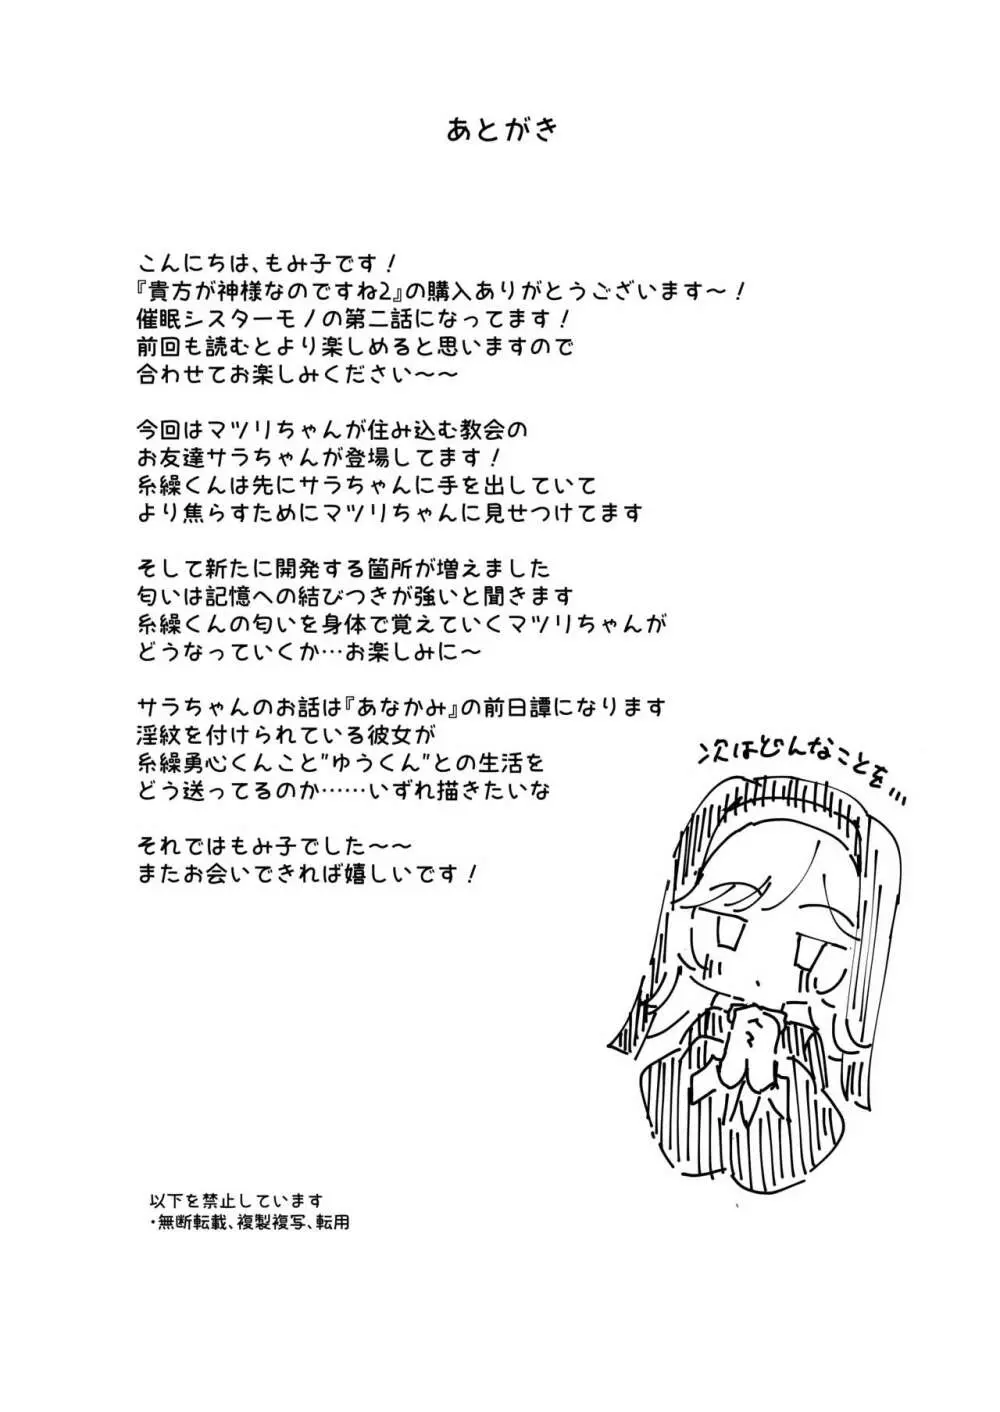 あとがき
こんにちは、もみ子です！
『貴方が神様なのですね2』の購入ありがとうございます～！
催眠シスターモノの第二話になってます！
前回も読むとより楽しめると思いますので
合わせてお楽しみください～～
今回はマツリちゃんが住み込む教会の
お友達サラちゃんが登場してます！
糸繰くんは先にサラちゃんに手を出していて
より焦らすためにマツリちゃんに見せつけてます
そして新たに開発する箇所が増えました
匂いは記憶への結びつきが強いと聞きます
糸繰くんの匂いを身体で覚えていくマツリちゃんが
どうなっていくか…お楽しみに～
サラちゃんのお話は『あなかみ』の前日譚になります
淫紋を付けられている彼女が
糸繰勇心くんこと”ゆうくん”との生活を
どう送ってるのか……いずれ描きたいな
それではもみ子でした～～
またお会いできれば嬉しいです！
次はどんなことを…
以下を禁止しています
・無断転載、複製複写、転用